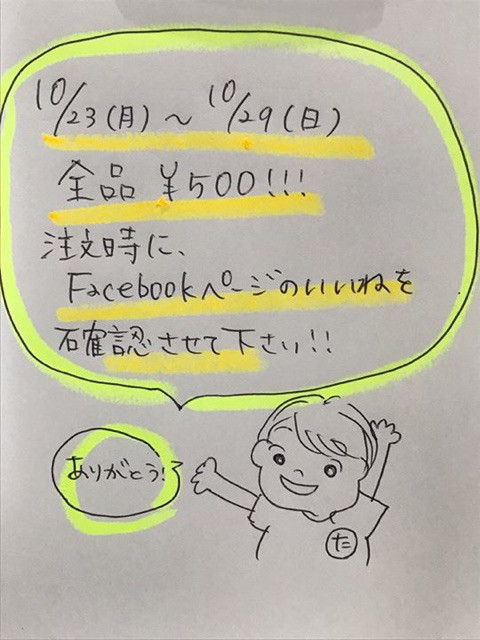 10/23(月)～10/29(日)
全品 ¥500!!!
注文時に、
Facebookページのいいねを
確認させて下さい!!
ありがとう!
た